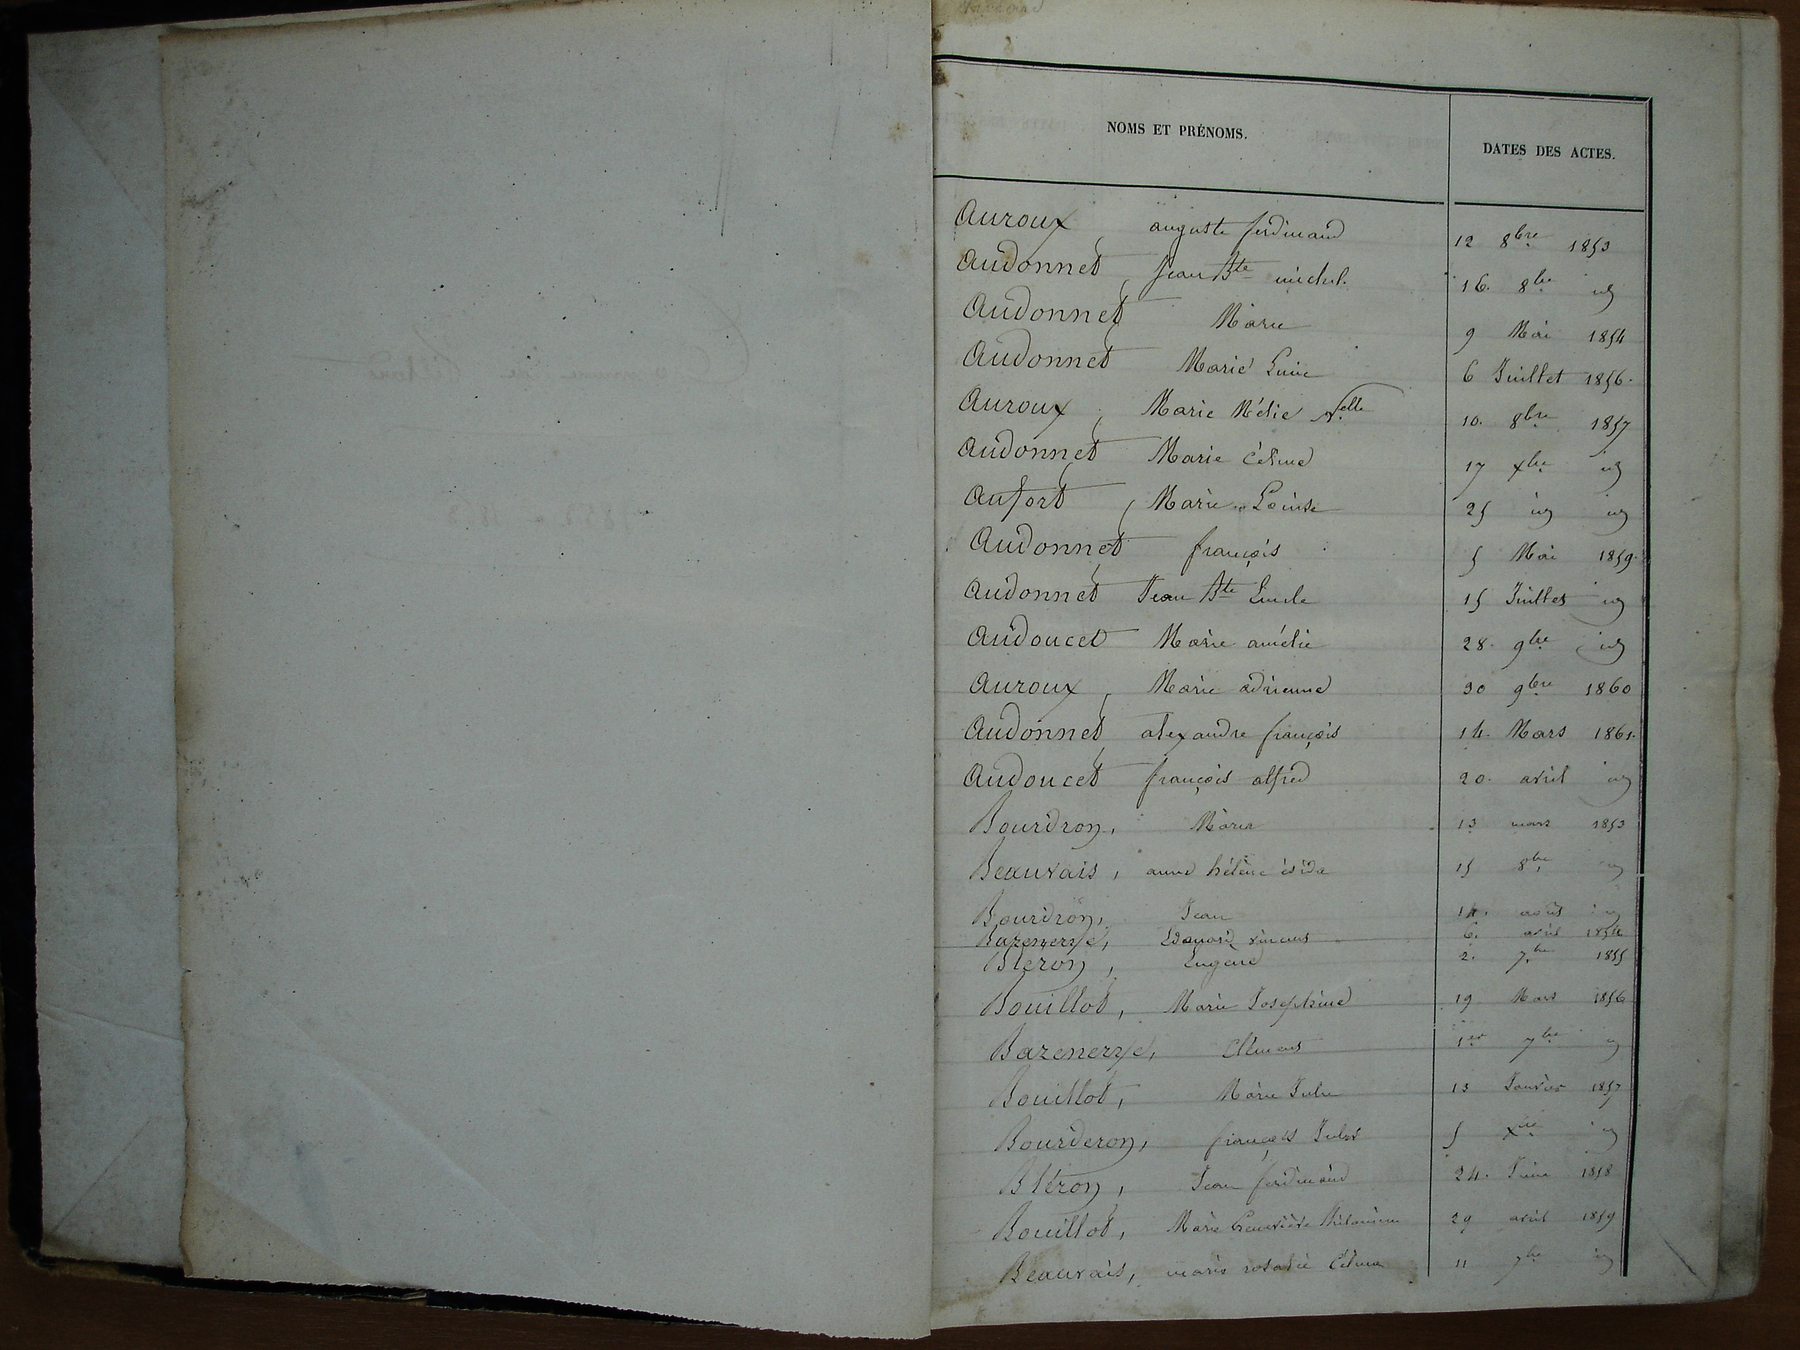 NOMS ET PRÉNOMS. DATES DES ACTES.
Auroux, auguste ferdinand 12 8bre 1853
Audonnet, Jean Bte michel. 16. 8bre id
Audonnet, Marie 9 Mai 1854
Audonnet Marie 6 Juillet 1856.
Auroux, Marie Nelle 10. 8bre 1857
Audonnet, Marie Célina 17 xbre id
Aufort, Marie Louise 25 id id
Audonnet, françois 5 Mai 1859.
Audonnet Jean Bte 15 Juillet id
Audoucet Marie amélie 28. 9bre id
Auroux, Marie adrienne 30 9bre 1860
Audonnet, alexandre françois 14. Mars 1861.
Audoucet françois alfred 20. avril id
Bourdron, Maria 13 mars 1853
Beauvais, anne hélène 15 8bre id
Bourdron, Jean 14. août id
Bazenerye, Edouard vincent 6. avril 1854
Bléron, Eugène 2. 7bre 1855
Bouillot, Marie Josephine 19 Mars 1856
Bazenerye, Clément 1er 7bre id
Bouillot, Marie Julie 13 Janvier 1857
Bourderon, françois Jules 5 xbre id
Bléron, Jean ferdinand 24. Juin 1858
Bouillot, Marie Geneviève 29 avril 1859
Beauvais, marie rosalie Célina 11 7bre id